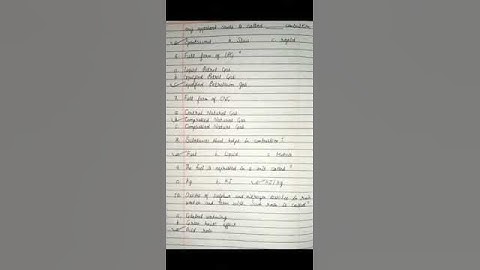 any apparent cause is called ______ combustion
a. Spontaneous b. Slow c. rapid
6. Full form of LPG?
a. Liquid Petrol Gas
b. Liquified Petrol Gas
c. Liquified Petroleum Gas
7. Full form of CNG
a. Control Natural Gas
b. Compressed Natural Gas
c. Compressed Nature Gas
8. Substances that helps in combustion?
a. Fuel b. Liquid c.
9. The fuel is expressed in a unit called?
a. Kg b. KJ c. KJ/Kg
10. Oxides of sulphur and nitrogen dissolve in rain water and form acids. Such rain is called?
a. Global warming
b. Green house effect
c. Acid rain